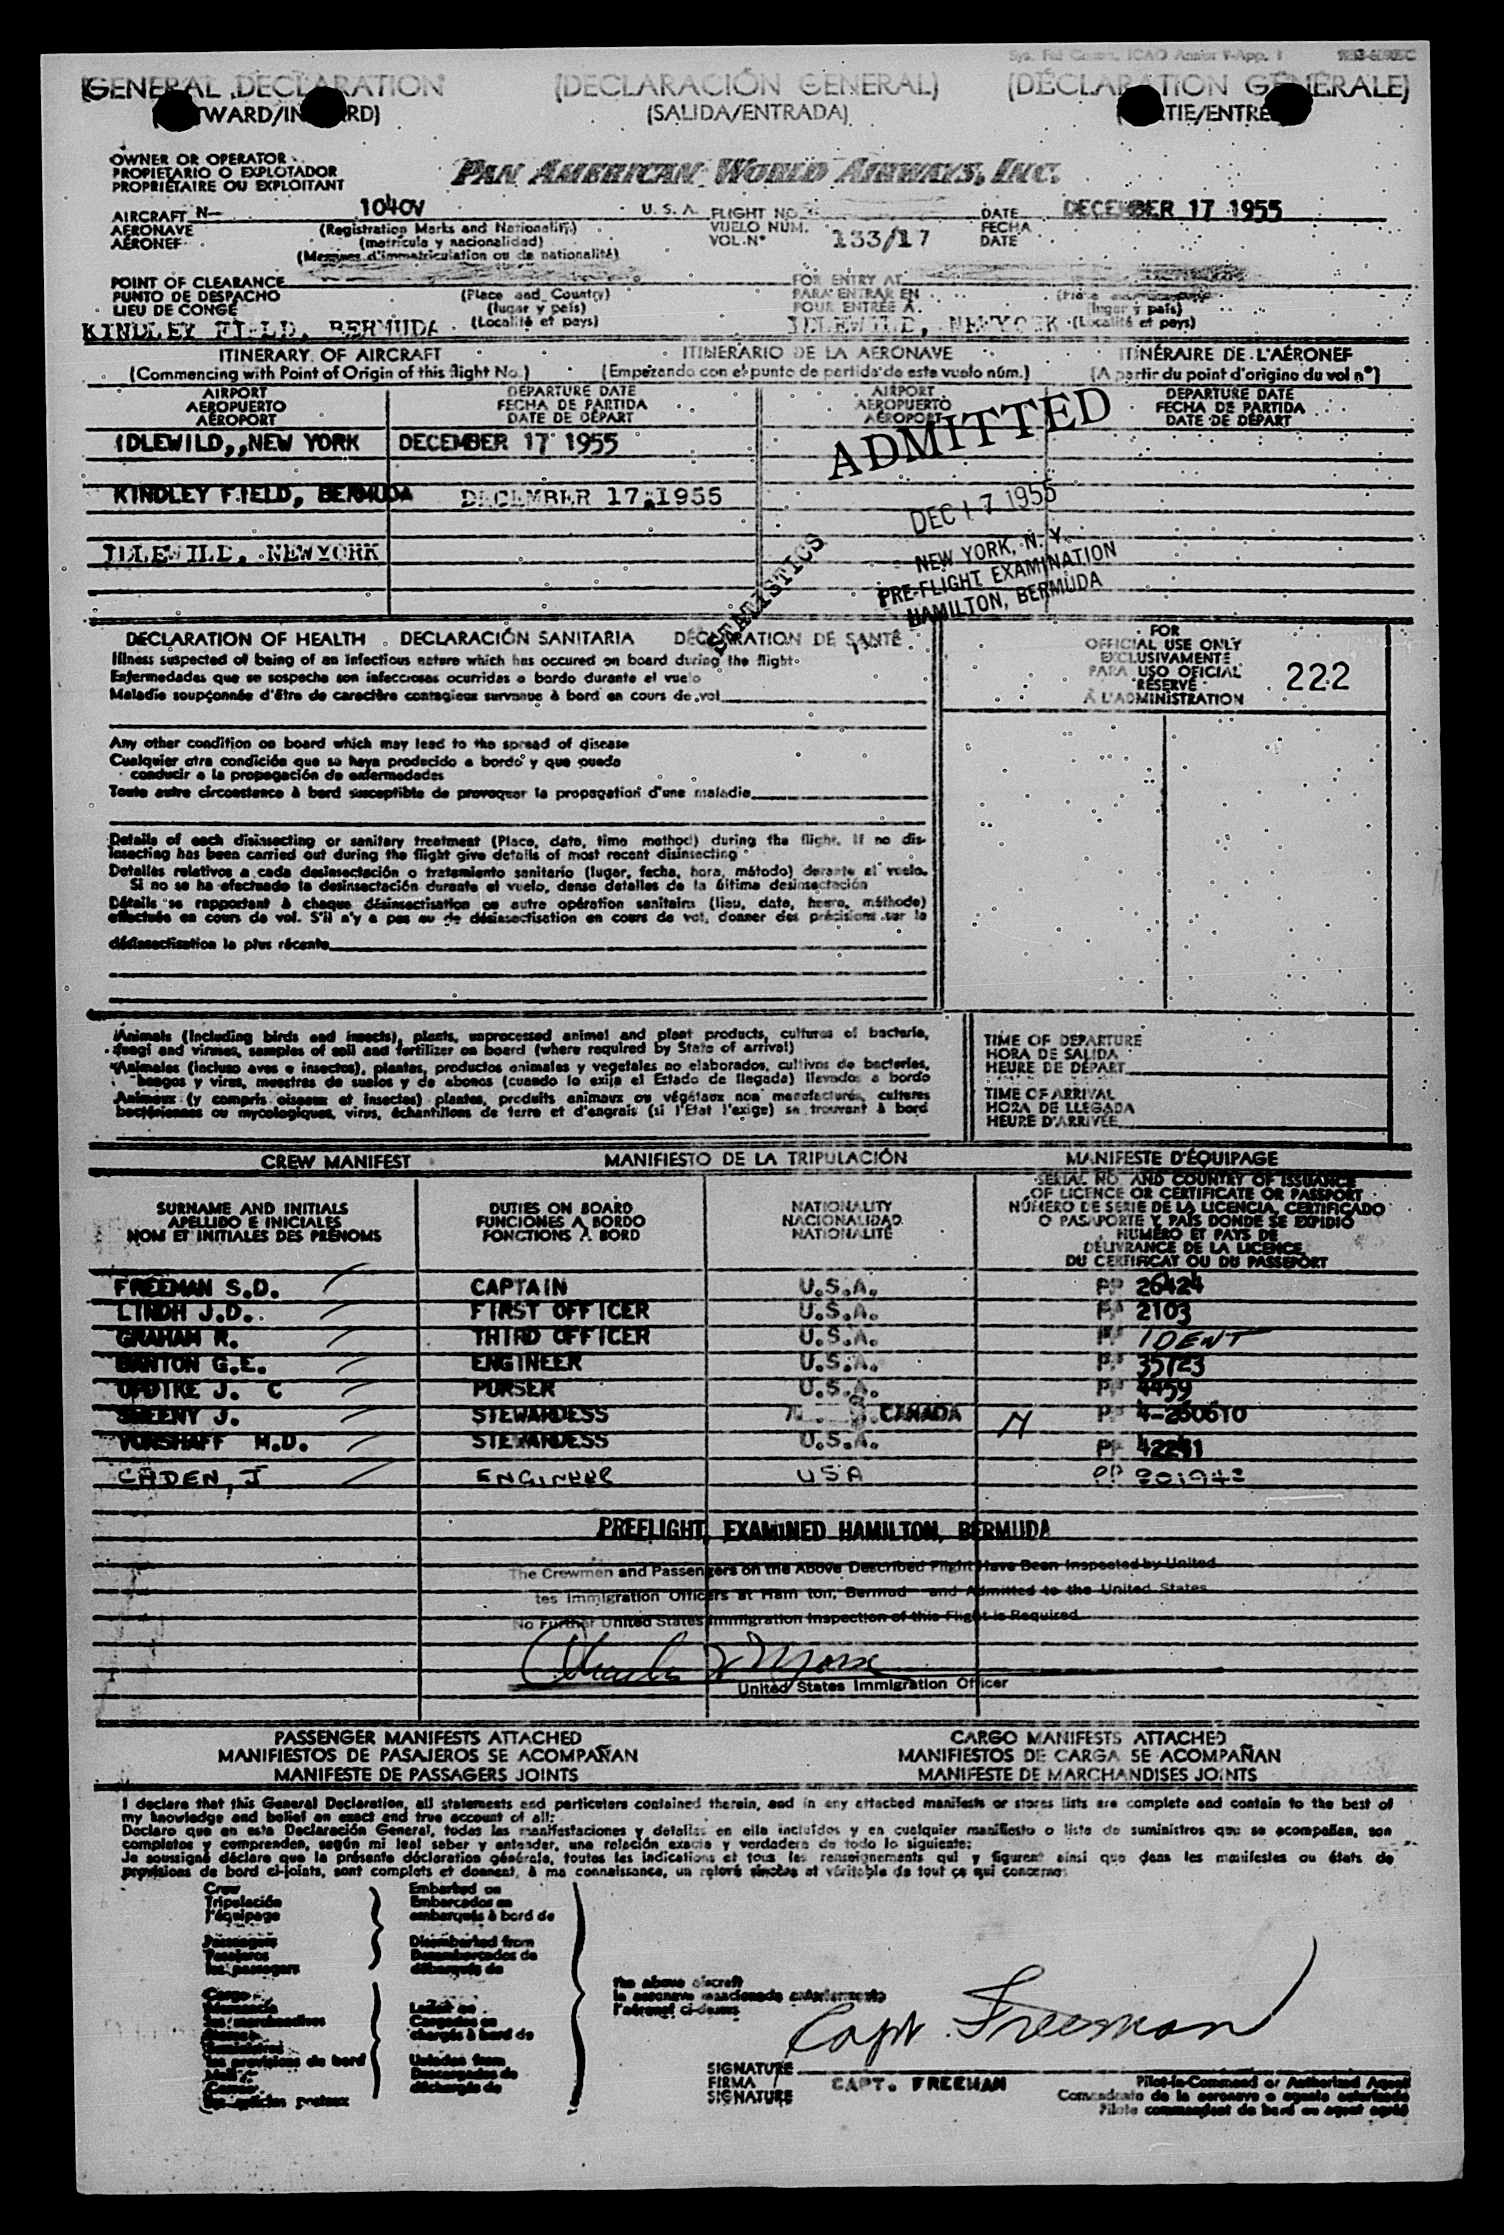 GENERAL DECLARATION (DECLARACIÓN GENERAL) (DÉCLARATION GÉNÉRALE)
(OUTWARD/INWARD) (SALIDA/ENTRADA) (SORTIE/ENTRÉE)
OWNER OR OPERATOR
PROPIETARIO O EXPLOTADOR
PROPRIÉTAIRE OU EXPLOITANT
PAN AMERICAN WORLD AIRWAYS, INC.
AIRCRAFT N- 1040V U.S.A. FLIGHT NO. DATE DECEMBER 17 1955
AERONAVE (Registration Marks and Nationality) VUELO NÚM. 133/17 FECHA
AÉRONEF (matrícula y nacionalidad) VOL N° DATE
(Marques d'immatriculation ou de nationalité)
POINT OF CLEARANCE FOR ENTRY AT
PUNTO DE DESPACHO (Place and Country) PARA ENTRAR EN
LIEU DE CONGÉ (lugar y país) POUR ENTRÉE A (lugar y país)
KINDLEY FIELD, BERMUDA (Localité et pays) IDLEWILD, NEWYORK (Localité et pays)
ITINERARY OF AIRCRAFT ITINERARIO DE LA AERONAVE ITINÉRAIRE DE L'AÉRONEF
(Commencing with Point of Origin of this flight No.) (Empezando con el punto de partida de este vuelo núm.) (A partir du point d'origine du vol n°)
AIRPORT DEPARTURE DATE AIRPORT DEPARTURE DATE
AEROPUERTO FECHA DE PARTIDA AEROPUERTO FECHA DE PARTIDA
AÉROPORT DATE DE DÉPART AÉROPORT DATE DE DÉPART
IDLEWILD,,NEW YORK DECEMBER 17 1955
KINDLEY FIELD, BERMUDA DECEMBER 17,1955
IDLEWILD, NEWYORK
ADMITTED
DEC 17 1955
NEW YORK, N. Y.
PRE-FLIGHT EXAMINATION
HAMILTON, BERMUDA
STATISTICS
DECLARATION OF HEALTH DECLARACIÓN SANITARIA DÉCLARATION DE SANTÉ
Illness suspected of being of an infectious nature which has occured on board during the flight
Enfermedades que se sospecha son infecciosas ocurridas a bordo durante el vuelo
Maladie soupçonnée d'être de caractère contagieux survenue à bord en cours de vol
FOR
OFFICIAL USE ONLY
EXCLUSIVAMENTE
PARA USO OFICIAL
RÉSERVÉ
À L'ADMINISTRATION
222
Any other condition on board which may lead to the spread of disease
Cualquier otra condición que se haya producido a bordo y que pueda
conducir a la propagación de enfermedades
Toute autre circonstance à bord susceptible de provoquer la propagation d'une maladie
Details of each disinsecting or sanitary treatment (Place, date, time method) during the flight. If no dis-
insecting has been carried out during the flight give details of most recent disinsecting
Detalles relativos a cada desinsectación o tratamiento sanitario (lugar, fecha, hora, método) durante el vuelo.
Si no se ha efectuado la desinsectación durante el vuelo, dense detalles de la última desinsectación
Détails se rapportant à chaque désinsectisation ou autre opération sanitaire (lieu, date, heure, méthode)
effectuée en cours de vol. S'il n'y a pas eu de désinsectisation en cours de vol, donner des précisions sur la
désinsectisation la plus récente
Animals (including birds and insects), plants, unprocessed animal and plant products, cultures of bacteria,
fungi and viruses, samples of soil and fertilizer on board (where required by State of arrival)
Animales (incluso aves e insectos), plantas, productos animales y vegetales no elaborados, cultivos de bacterias,
hongos y virus, muestras de suelos y de abonos (cuando lo exija el Estado de llegada) llevados a bordo
Animaux (y compris oiseaux et insectes) plantes, produits animaux ou végétaux non manufacturés, cultures
bactériennes ou mycologiques, virus, échantillons de terre et d'engrais (si l'État l'exige) se trouvant à bord
TIME OF DEPARTURE
HORA DE SALIDA
HEURE DE DÉPART
TIME OF ARRIVAL
HORA DE LLEGADA
HEURE D'ARRIVÉE
CREW MANIFEST MANIFIESTO DE LA TRIPULACIÓN MANIFESTE D'ÉQUIPAGE
SURNAME AND INITIALS
APELLIDO E INICIALES
NOM ET INITIALES DES PRÉNOMS
DUTIES ON BOARD
FUNCIONES A BORDO
FONCTIONS À BORD
NATIONALITY
NACIONALIDAD
NATIONALITÉ
SERIAL NO. AND COUNTRY OF ISSUANCE
OF LICENCE OR CERTIFICATE OR PASSPORT
NÚMERO DE SERIE DE LA LICENCIA, CERTIFICADO
O PASAPORTE Y PAÍS DONDE SE EXPIDIÓ
NUMÉRO ET PAYS DE
DÉLIVRANCE DE LA LICENCE,
DU CERTIFICAT OU DU PASSEPORT
FREEMAN S.D. CAPTAIN U.S.A. PP 26424
LINDH J.D. FIRST OFFICER U.S.A. PP 2103
GRAHAM R. THIRD OFFICER U.S.A. PP IDENT
DANTON G.E. ENGINEER U.S.A. PP 35723
UPDIKE J. C PURSER U.S.A. PP 4459
SWEENY J. STEWARDESS CANADA PP 4-260610
VONSHAFF M.D. STEWARDESS U.S.A. PP 42241
CADEN, J ENGINEER USA PP 201942
PREFLIGHT, EXAMINED HAMILTON, BERMUDA
The Crewmen and Passengers on the Above Described Flight Have Been Inspected by United
tes Immigration Officers at Ham ton, Bermud and Admitted to the United States
No Further United States Immigration Inspection of this Flight is Required.
United States Immigration Officer
PASSENGER MANIFESTS ATTACHED CARGO MANIFESTS ATTACHED
MANIFIESTOS DE PASAJEROS SE ACOMPAÑAN MANIFIESTOS DE CARGA SE ACOMPAÑAN
MANIFESTE DE PASSAGERS JOINTS MANIFESTE DE MARCHANDISES JOINTS
I declare that this General Declaration, all statements and particulars contained therein, and in any attached manifests or stores lists are complete and contain to the best of
my knowledge and belief an exact and true account of all:
Declaro que en esta Declaración General, todas las manifestaciones y detalles en ella incluídos y en cualquier manifiesto o lista de suministros que se acompañan, son
completos y comprenden, según mi leal saber y entender, una relación exacta y verdadera de todo lo siguiente:
Je soussigné déclare que la présente déclaration générale, toutes les indications et tous les renseignements qui y figurent ainsi que dans les manifestes ou états de
provisions de bord ci-joints, sont complets et donnent, à ma connaissance, un relevé sincère et véritable de tout ce qui concerne:
Crew
Tripulación
l'équipage
Passengers
Pasajeros
les passagers
Cargo
Mercancía
les marchandises
Stores
Suministros
les provisions de bord
Mail
Correo
Embarked on
Embarcados en
embarqués à bord de
Disembarked from
Desembarcados de
débarqués de
Laden on
Cargados en
chargés à bord de
Unladen from
Descargados de
déchargés de
the above aircraft
la aeronave mencionada anteriormente
l'aéronef ci-dessus
Capt Freeman
SIGNATURE
FIRMA
SIGNATURE
CAPT. FREEMAN
Pilot-in-Command or Authorized Agent
Comandante de la aeronave o agente autorizado
Pilote commandant de bord ou agent agréé